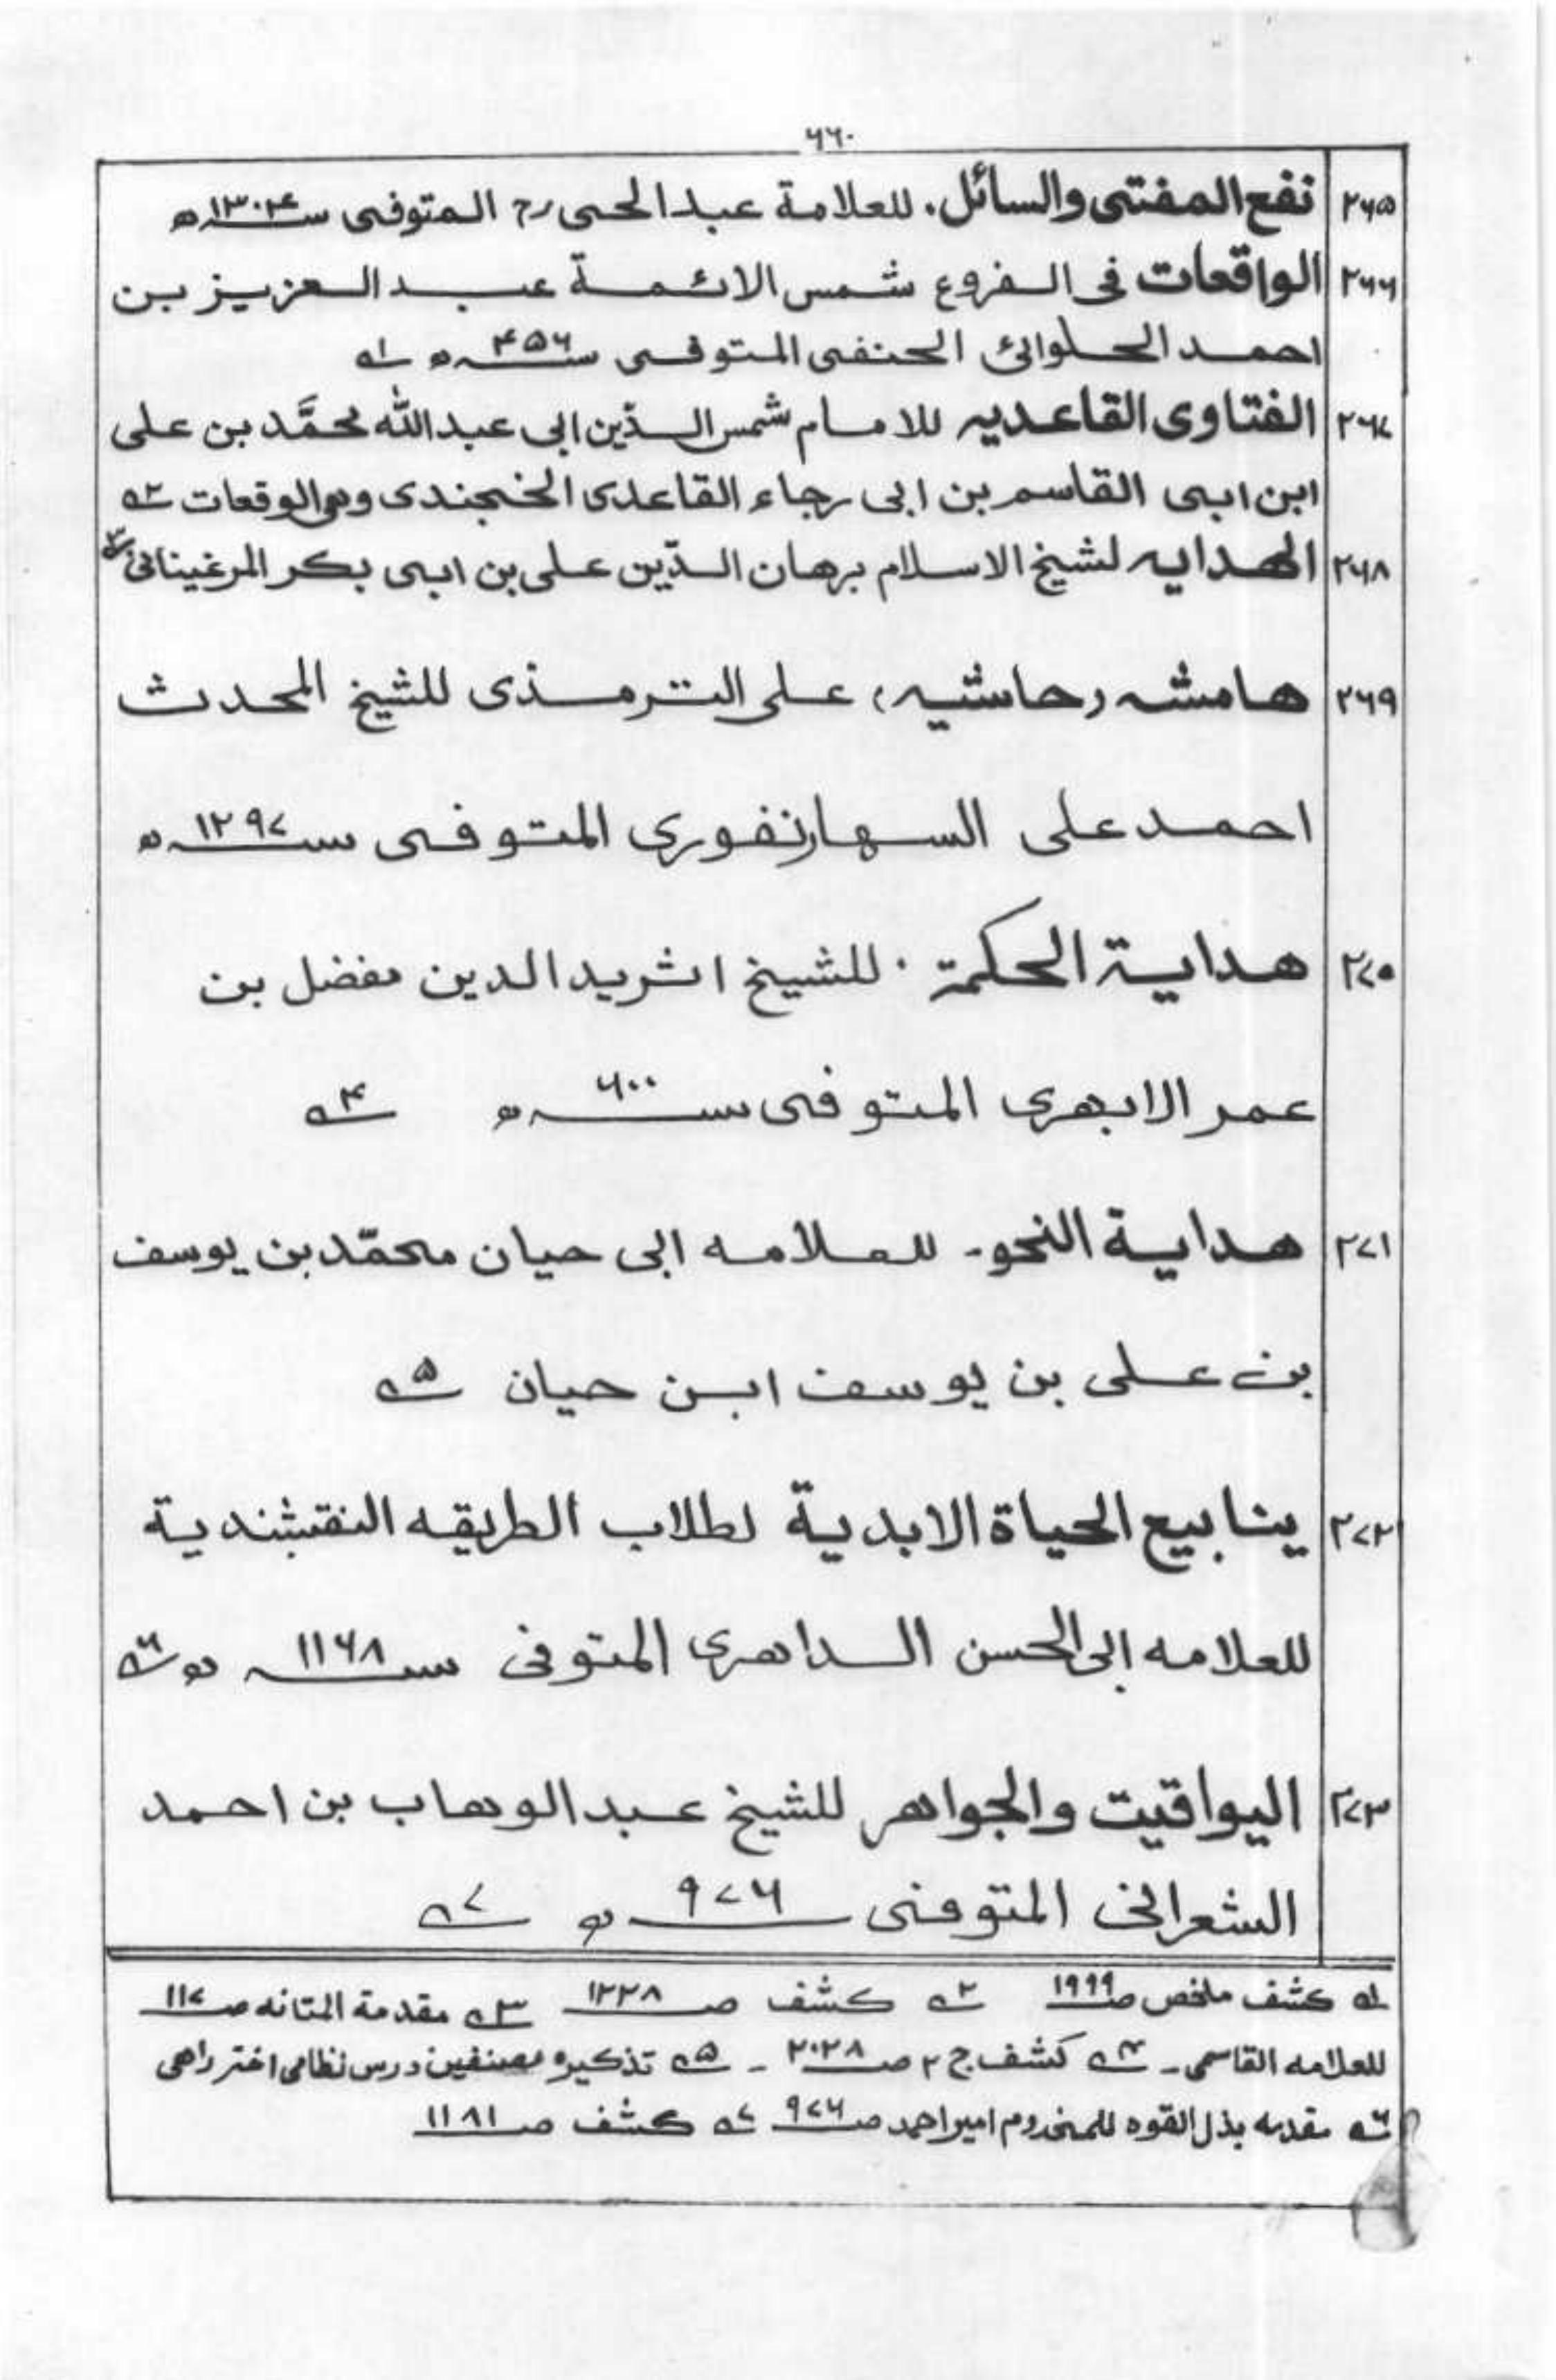 ۶۶۰
۲۶۵ نفع المفتی والسائل. للعلامة عبد الحی رح المتوفی سنہ ۱۳۰۴ھ
۲۶۶ الواقعات فی الفروع شمس الائمة عبد العزیز بن
احمد الحلوائی الحنفی المتوفی سنہ ۴۵۶ھ ۱ہ
۲۶۷ الفتاوی القاعدیہ للامام شمس الدّین ابی عبد الله محمَّد بن علی
ابن ابی القاسم بن ابی رجاء القاعدی الخجندی وھی الوقعات ۲ہ
۲۶۸ الھدایہ لشیخ الاسلام برھان الدّین علی بن ابی بکر المرغینانی ۳ہ
۲۶۹ ھامشہ (حاشیہ) علی الترمذی للشیخ المحدث
احمد علی السھارنفوری المتوفی سنہ ۱۲۹۷ھ
۲۷۰ ھدایة الحکمة. للشیخ اثرید الدین مفضل بن
عمر الابھری المتوفی سنہ ۶۰۰ھ ۴ہ
۲۷۱ ھدایة النحو۔ للعلامہ ابی حیان محمّد بن یوسف
بن علی بن یوسف ابن حیان ۵ہ
۲۷۲ ینابیع الحیاة الابدیة لطلاب الطریقہ النقشبندیة
للعلامہ ابی الحسن الداھری المتوفی سنہ ۱۱۶۸ھ ۶ہ
۲۷۳ الیواقیت والجواھر للشیخ عبد الوھاب بن احمد
الشعرانی المتوفی سنہ ۹۷۶ھ ۷ہ
۱ہ کشف ملخص صـ ۱۹۹۹ ۲ہ کشف صـ ۱۲۲۸ ۳ہ مقدمة المتانہ صـ ۱۱۷
للعلامہ القاسمی۔ ۴ہ کشف ج ۲ صـ ۲۰۲۸ ۔ ۵ہ تذکیرہ مصنفین درس نظامی اختر راھی
۶ہ مقدمہ بذل القوہ للمخدوم امیر احمد صـ ۹۷۶ ۷ہ کشف صـ ۱۱۸۱